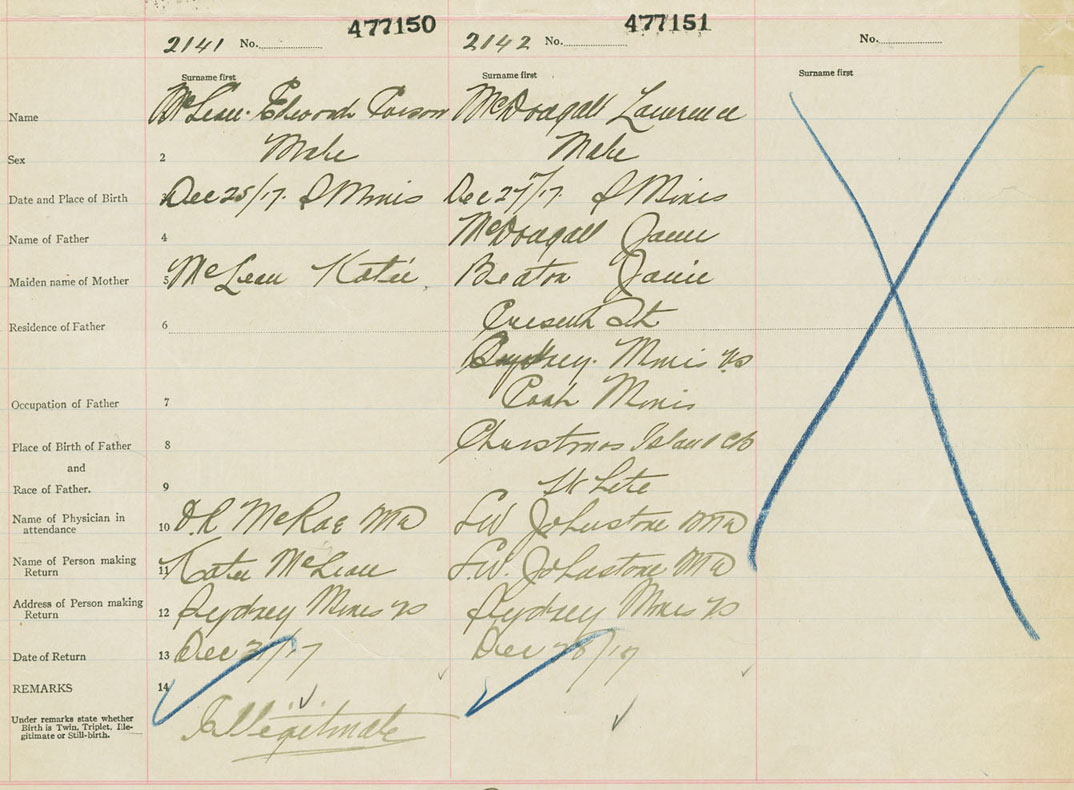 477150 477151
2141 No. 2142 No. No.
Surname first Surname first Surname first
Name McLean Edword Carson McDougall Lawrence
Sex 2 Male Male
Date and Place of Birth 3 Dec 25/17. S Mines Dec 27/17. S Mines
Name of Father 4 McDougall
Maiden name of Mother 5 McLean Katie Beaton Janie
Residence of Father 6 St
Sydney Mines NS
Occupation of Father 7
Place of Birth of Father 8 Christmas Island CB
and
Race of Father. 9 White
Name of Physician in attendance 10 McRae MD Johnstone MD
Name of Person making Return 11 Katie McLean Johnstone MD
Address of Person making Return 12 Sydney Mines NS Sydney Mines NS
Date of Return 13 Dec Dec
REMARKS 14
Under remarks state whether
Birth is Twin, Triplet, Ille-
gitimate or Still-birth. Illegitimate